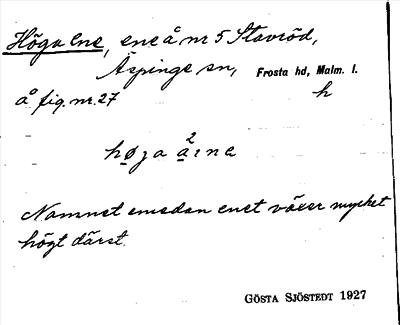 Höga Ene, ene å nr 5 Stavröd,
Äspinge sn, Frosta hd, Malm. l.
å fig. nr. 27 h
Namnet emedan enet växer mycket
högt därst.
GÖSTA SJÖSTEDT 1927